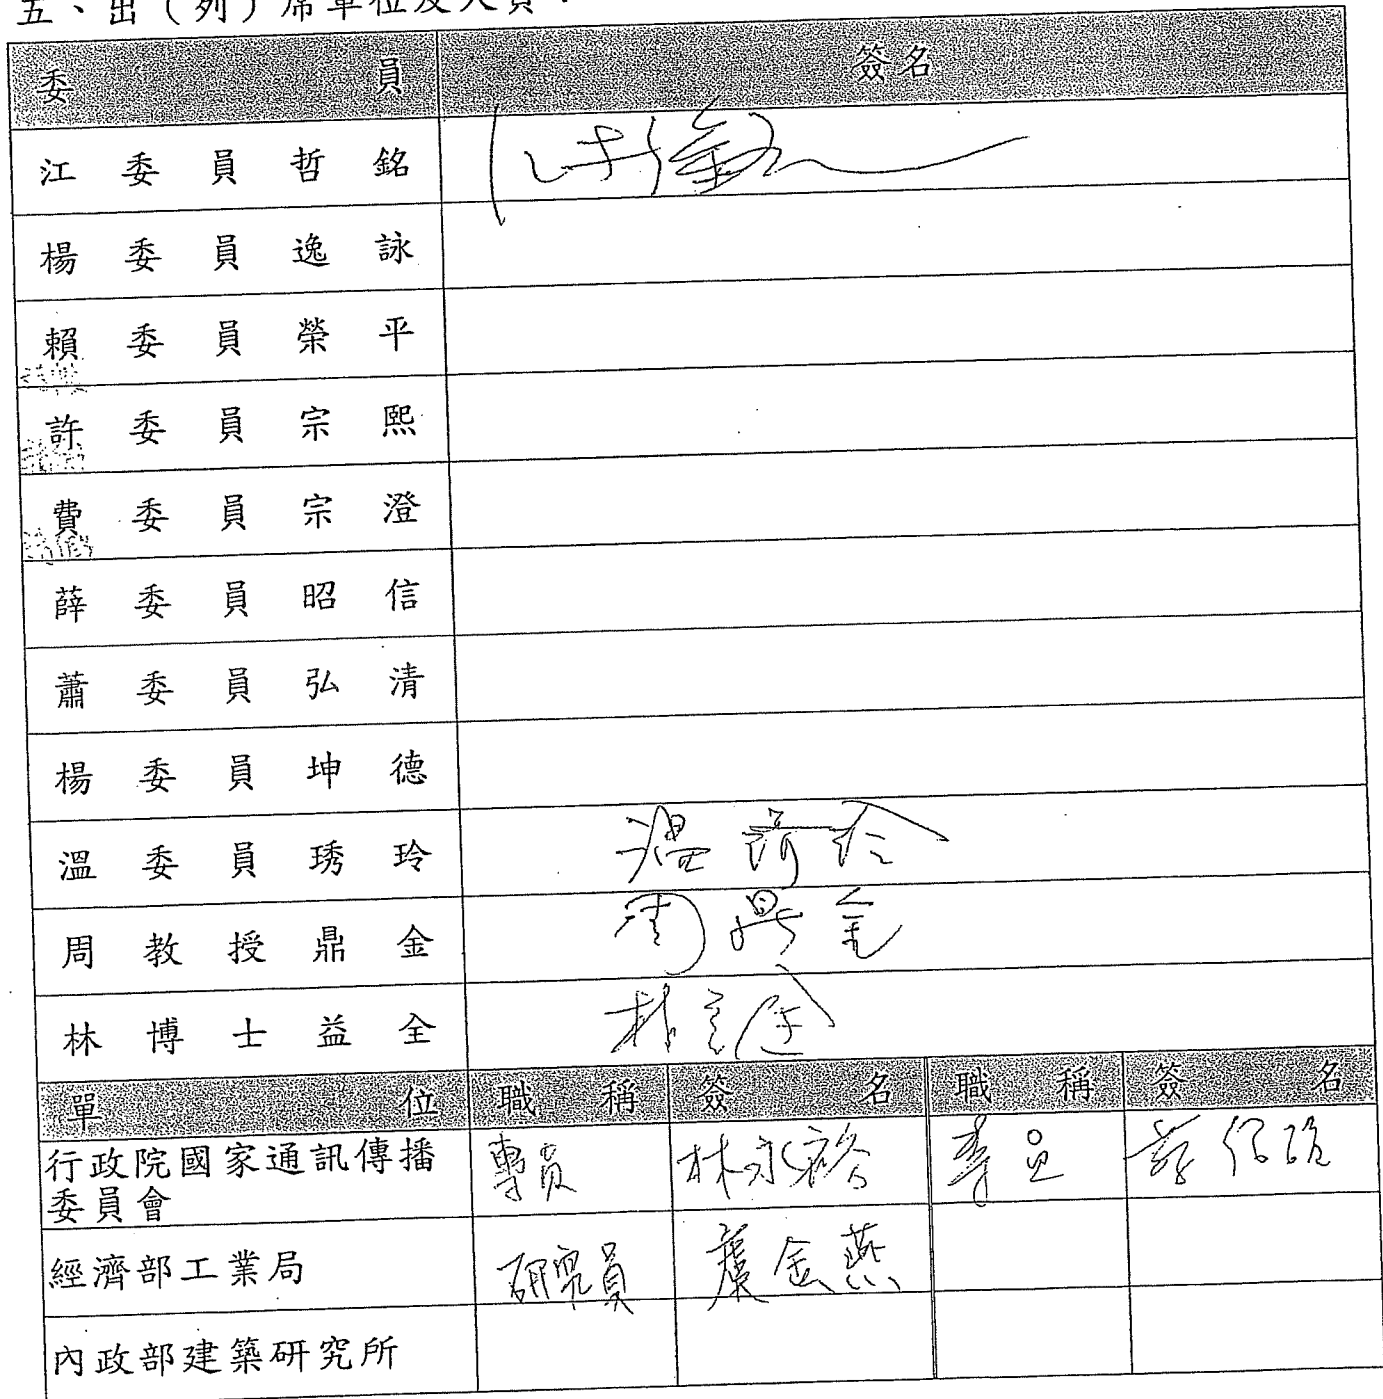 五、出（列）席單位及人員：
委員 簽名
江委員哲銘
楊委員逸詠
賴委員榮平
許委員宗熙
費委員宗澄
薛委員昭信
蕭委員弘清
楊委員坤德
溫委員琇玲 溫琇玲
周教授鼎金 周鼎金
林博士益全 林益全
單位 職稱 簽名 職稱 簽名
行政院國家通訊傳播
委員會 專員 林永裕
經濟部工業局 研究員 金燕
內政部建築研究所